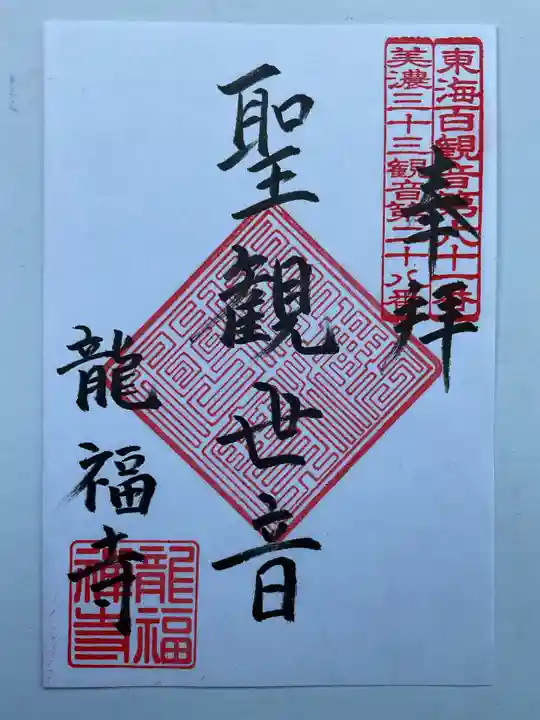 東海百観音第九十一番
美濃三十三観音第二十八番
奉拝
聖観世音
龍福寺
龍福
福寺